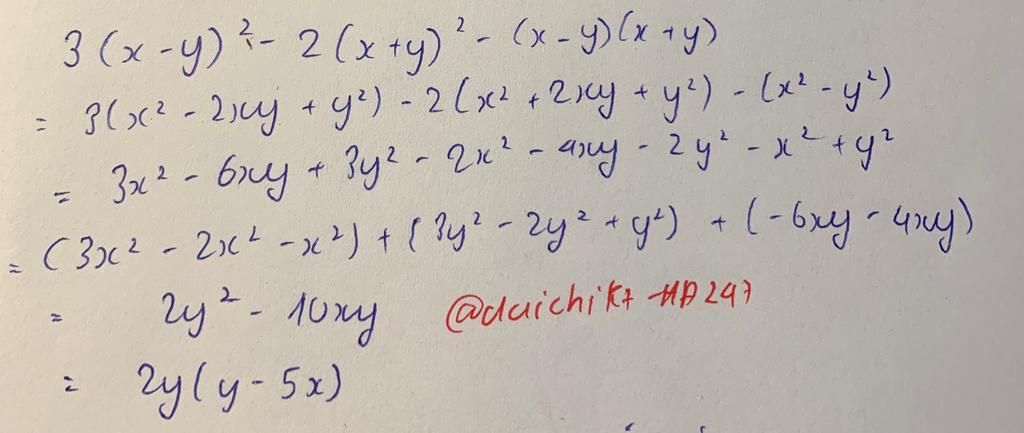 3(x-y)² - 2(x+y)² - (x-y)(x+y)
= 3(x² - 2xy + y²) - 2(x² + 2xy + y²) - (x² - y²)
= 3x² - 6xy + 3y² - 2x² - 4xy - 2y² - x² + y²
= (3x² - 2x² - x²) + (3y² - 2y² + y²) + (-6xy - 4xy)
= 2y² - 10xy @daichik7 HD247
= 2y(y - 5x)